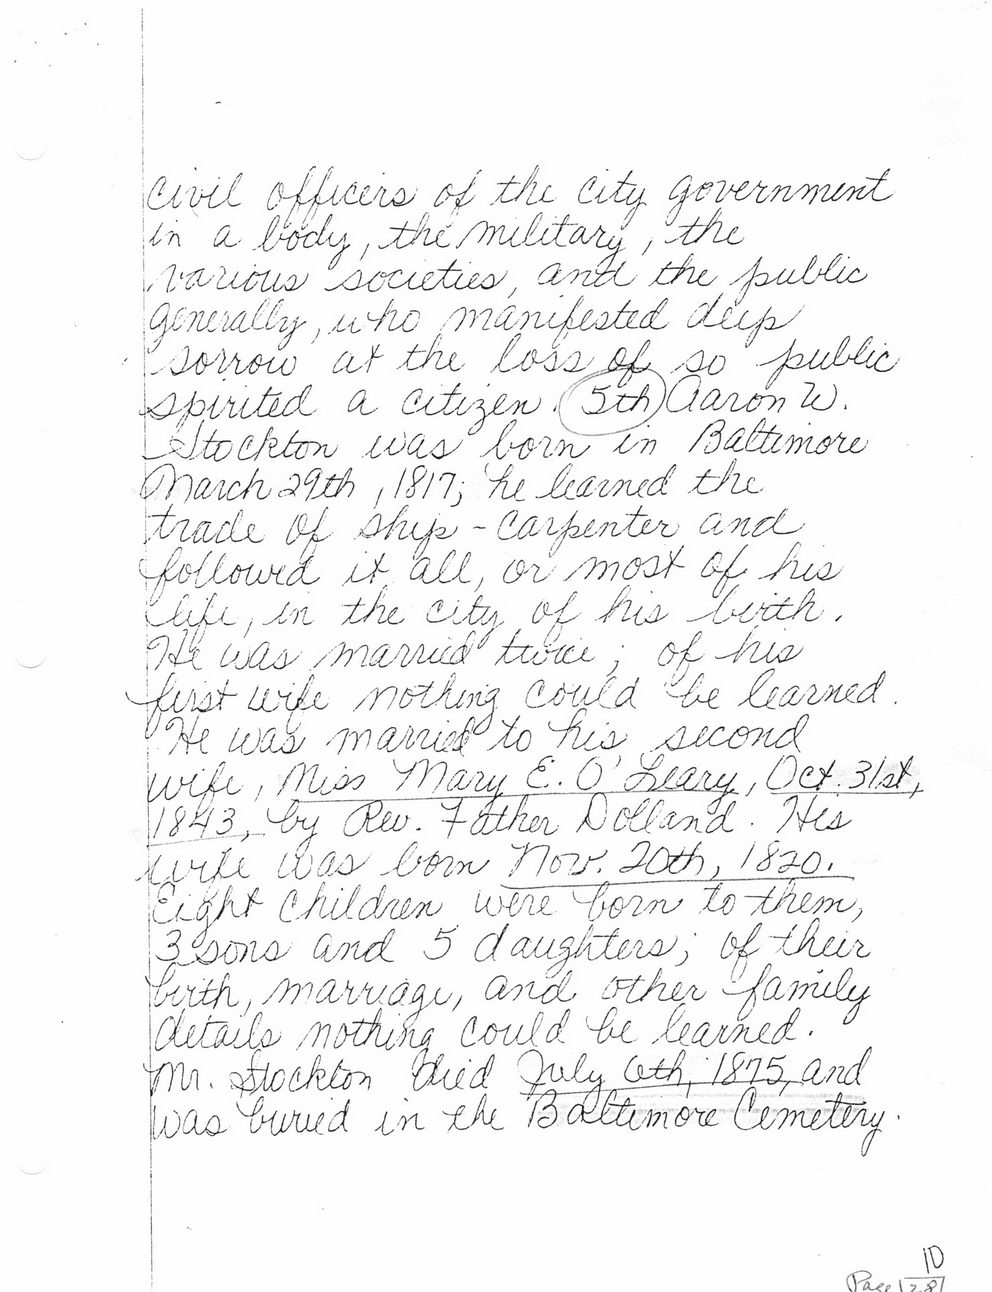 civil officers of the city government
in a body, the military, the
various societies, and the public
generally, who manifested deep
sorrow at the loss of so public
spirited a citizen. 5th Aaron W.
Stockton was born in Baltimore
March 29th, 1817; he learned the
trade of ship-carpenter and
followed it all, or most of his
life, in the city of his birth.
He was married twice; of his
first wife nothing could be learned.
He was married to his second
wife, Miss Mary E. O'Leary, Oct. 31st,
1843, by Rev. Father Dolland. His
wife was born Nov. 20th, 1820.
Eight children were born to them,
3 sons and 5 daughters; of their
birth, marriage, and other family
details nothing could be learned.
Mr. Stockton died July 6th, 1875, and
was buried in the Baltimore Cemetery.
10
Page 128